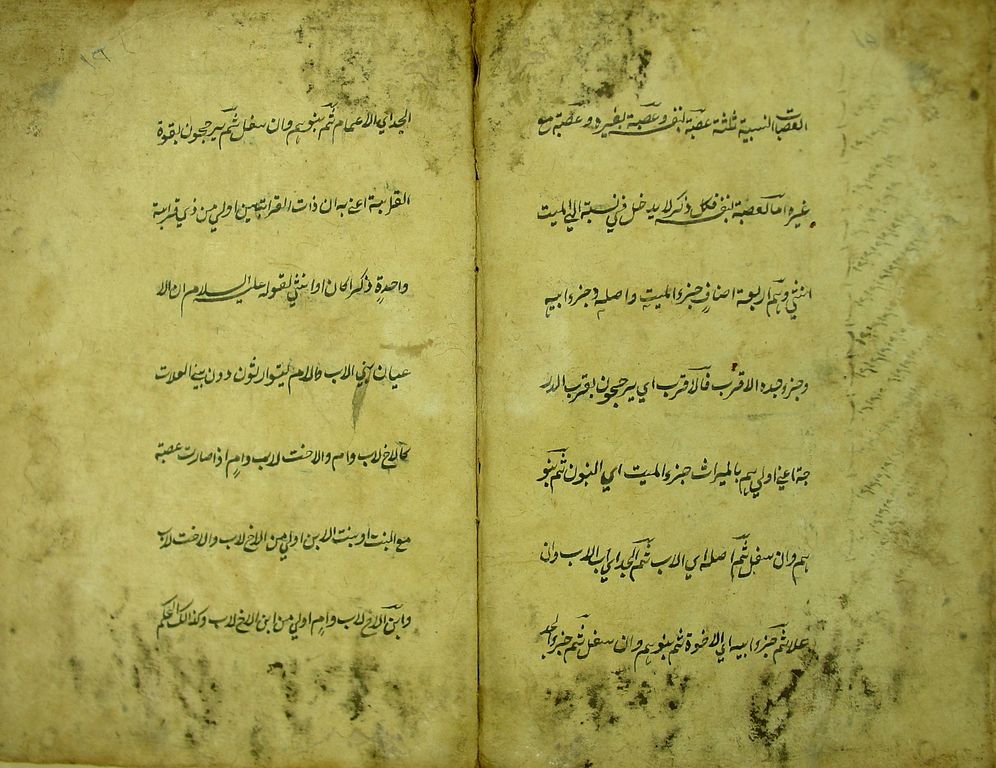 ١٥
العصبات النسبية ثلثة عصبة بنفسه وعصبة بغيره وعصبة مع
غيره اما العصبة بنفسه فكل ذكر لا يدخل في نسبة الي الميت
انثي وهم اربعة اصناف جزء الميت واصله وجزء ابيه
وجزء جده الاقرب فالاقرب اي يرجحون بقرب الدر
جة اعني اولي هم بالميراث جزء الميت اي البنون ثم بنو
هم وان سفل ثم اصله اي الاب ثم الجد اي اب الاب وان
علا ثم جزء ابيه اي الاخوة ثم بنوهم وان سفل ثم جزء
١٦
الجد اي الاعمام ثم بنوهم وان سفل ثم يرجحون بقوة
القرابة اعني به ان ذات القرابتين اولي من ذي قرابة
واحدة ذكرا كان او انثي لقوله عليه السلام ان الا
عيان بني الاب والام يتوارثون دون بني العلات
كالاخ لاب وام والاخت لاب وام اذا صارت عصبة
مع البنت او بنت الابن اولي من الاخ لاب والاخت لاب
وابن الاخ لاب وام اولي من ابن الاخ لاب وكذالك الحكم